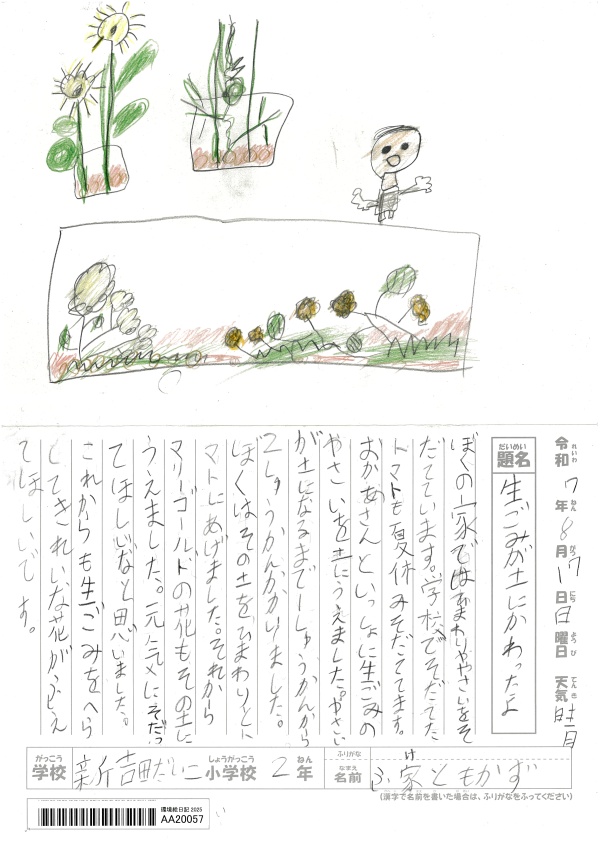 令和7年8月17日日曜日 天気 晴
れいわ ねん がつ にち ようび てんき
だいめい
題名 生ごみが土にかわったよ
ぼくの家ではひまわりややさいをそ
だてています。学校でそだてた
トマトも夏休みそだててます。
おかあさんといっしょに生ごみの
やさいを土にうえました。やさい
が土になるまで一しゅうかんから
2しゅうかんかかりました。
ぼくはその土をひまわりとト
マトにあげました。それから
マリーゴールドの花もその土に
うえました。元気にそだっ
てほしいなと思いました。
これからも生ごみをへら
してきれいな花がふえ
てほしいです。
がっこう しょうがっこう ねん
学校 新吉田だい二 小学校 2年
ふりがな け
なまえ
名前 ふ家ともかず
(漢字で名前を書いた場合は、ふりがなをふってください)
環境絵日記 2025
AA20057